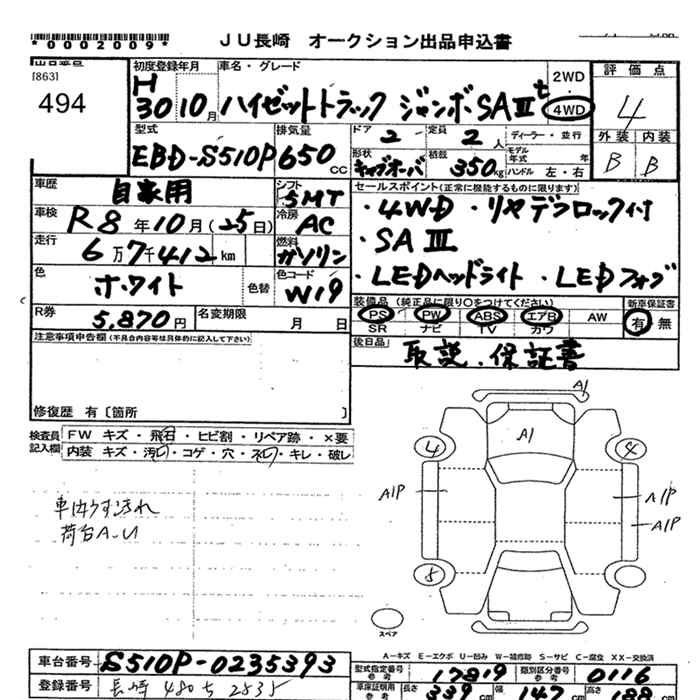 *0002009*
JU長崎 オークション出品申込書
[863]
494
初度登録年月
H
30 10月
車名・グレード
ハイゼットトラック ジャンボSAⅢt
2WD
4WD
評価点
4
外装 内装
B B
型式
EBD-S510P
排気量
650 CC
ドア 2
定員 2人
ディーラー・並行
形状 キャブオーバ
積載 350kg
モデル年式 年
ハンドル 左・右
車歴 自家用
シフト 5MT
車検 R8年10月(25日)
冷房 AC
走行 6万7千412km
燃料 ガソリン
色 ホワイト
色替
色コード W19
R券 5,870円
名変期限 月 日
セールスポイント(正常に機能するものに限ります)
・4WD ・リヤデフロック付
・SAⅢ
・LEDヘッドライト ・LEDフォグ
装備品 (純正品に限り○をつけてください)
PS PW ABS エアB AW
SR ナビ TV カワ
新車保証書
有・無
後日品 取説・保証書
注意事項申告欄(不具合内容等は具体的に記入して下さい)
修復歴 有〔箇所 〕
検査員記入欄
FW キズ・飛石・ヒビ割・リペア跡・×要
内装 キズ・汚レ・コゲ・穴・スレ・キレ・破レ
車内うす汚れ
荷台A-U
A1
A1
4
4
A1P
A1P
A1P
5
スペア
A-キズ E-エクボ U-凹み W-補修跡 S-サビ C-腐食 XX-交換済
車台番号 S510P-0235393
登録番号 長崎 480ち 2535
型式指定番号 17819
類別区分番号 0116
車庫証明用 長さ 339cm 幅 147cm 高さ 188cm